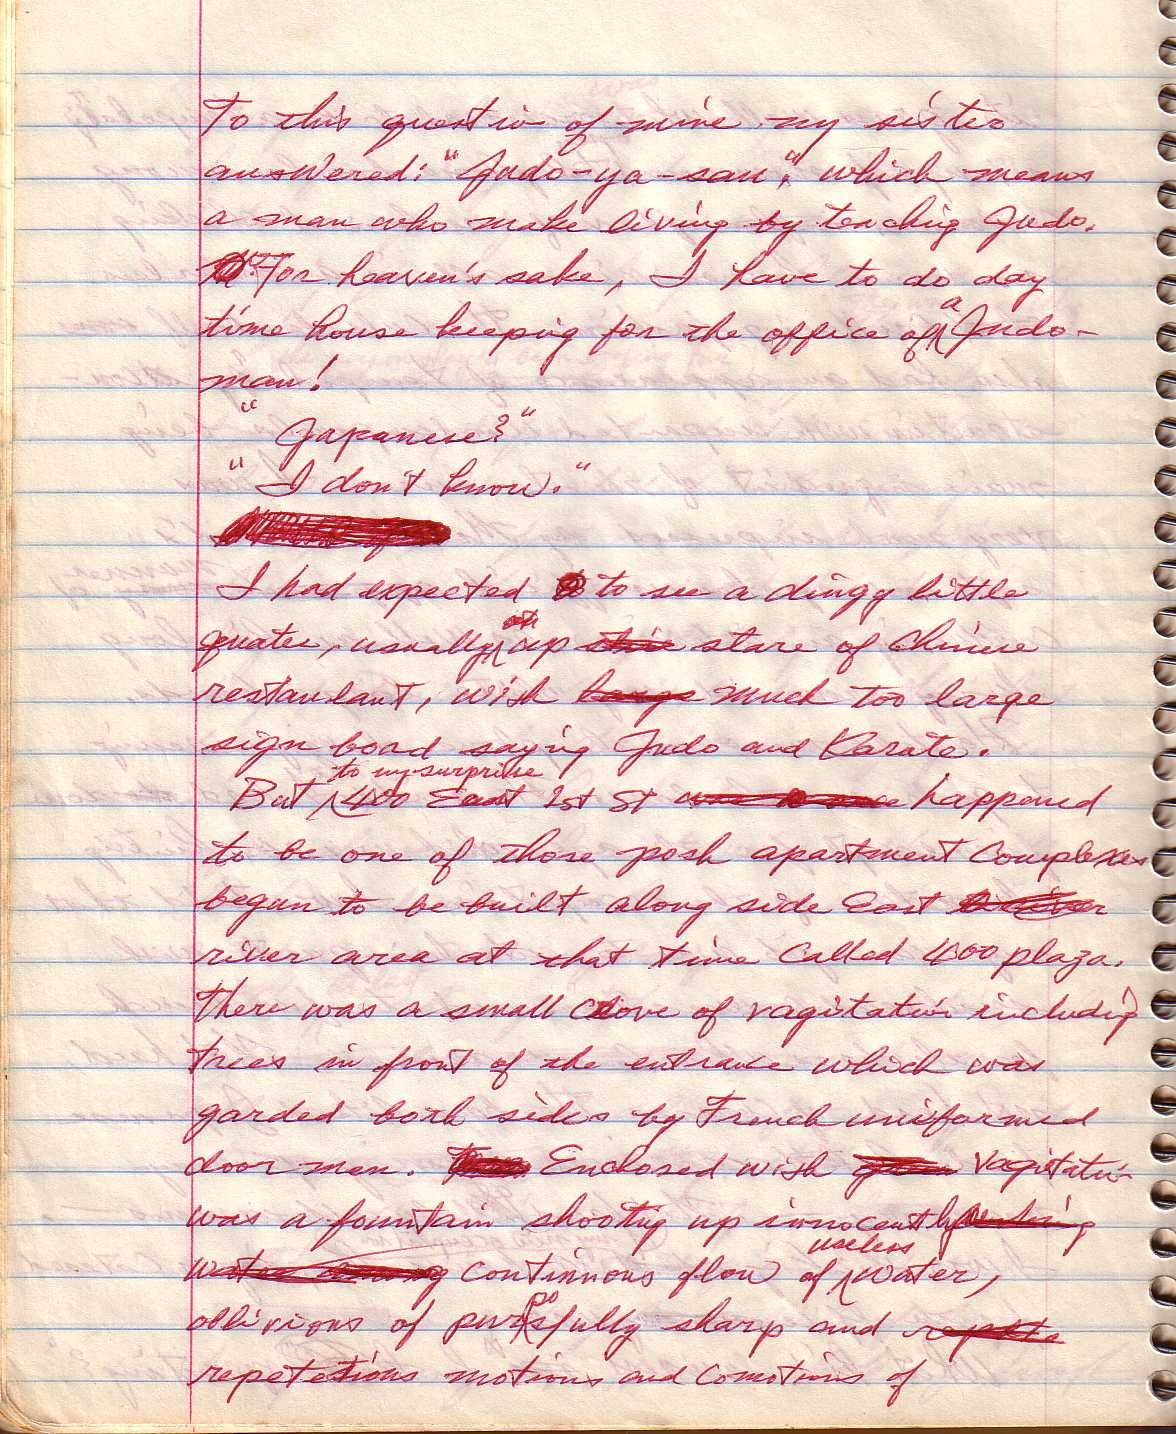 To this question of mine my sister
answered: "Judo-ya-san", which means
a man who make living by teaching Judo.
For heaven's sake, I have to do day
time house keeping for the office of a Judo-
man!
"Japanese?"
"I don't know."
I had expected to see a dingy little
quater, usually at up stare of Chinese
restaulant, with much too large
sign boad saying Judo and Karate.
But to my surprise 400 East 1st St happened
to be one of those posh apartment complexes
begun to be built along side East
river area at that time called 400 plaza.
There was a small cove of vagitation including
trees in front of the entrance which was
garded both sides by French uniformed
door men. Enclosed with vagitation
was a fountain shooting up innocently
continuous flow of useless water,
oblivious of purposfully sharp and
repetetions motions and comotions of